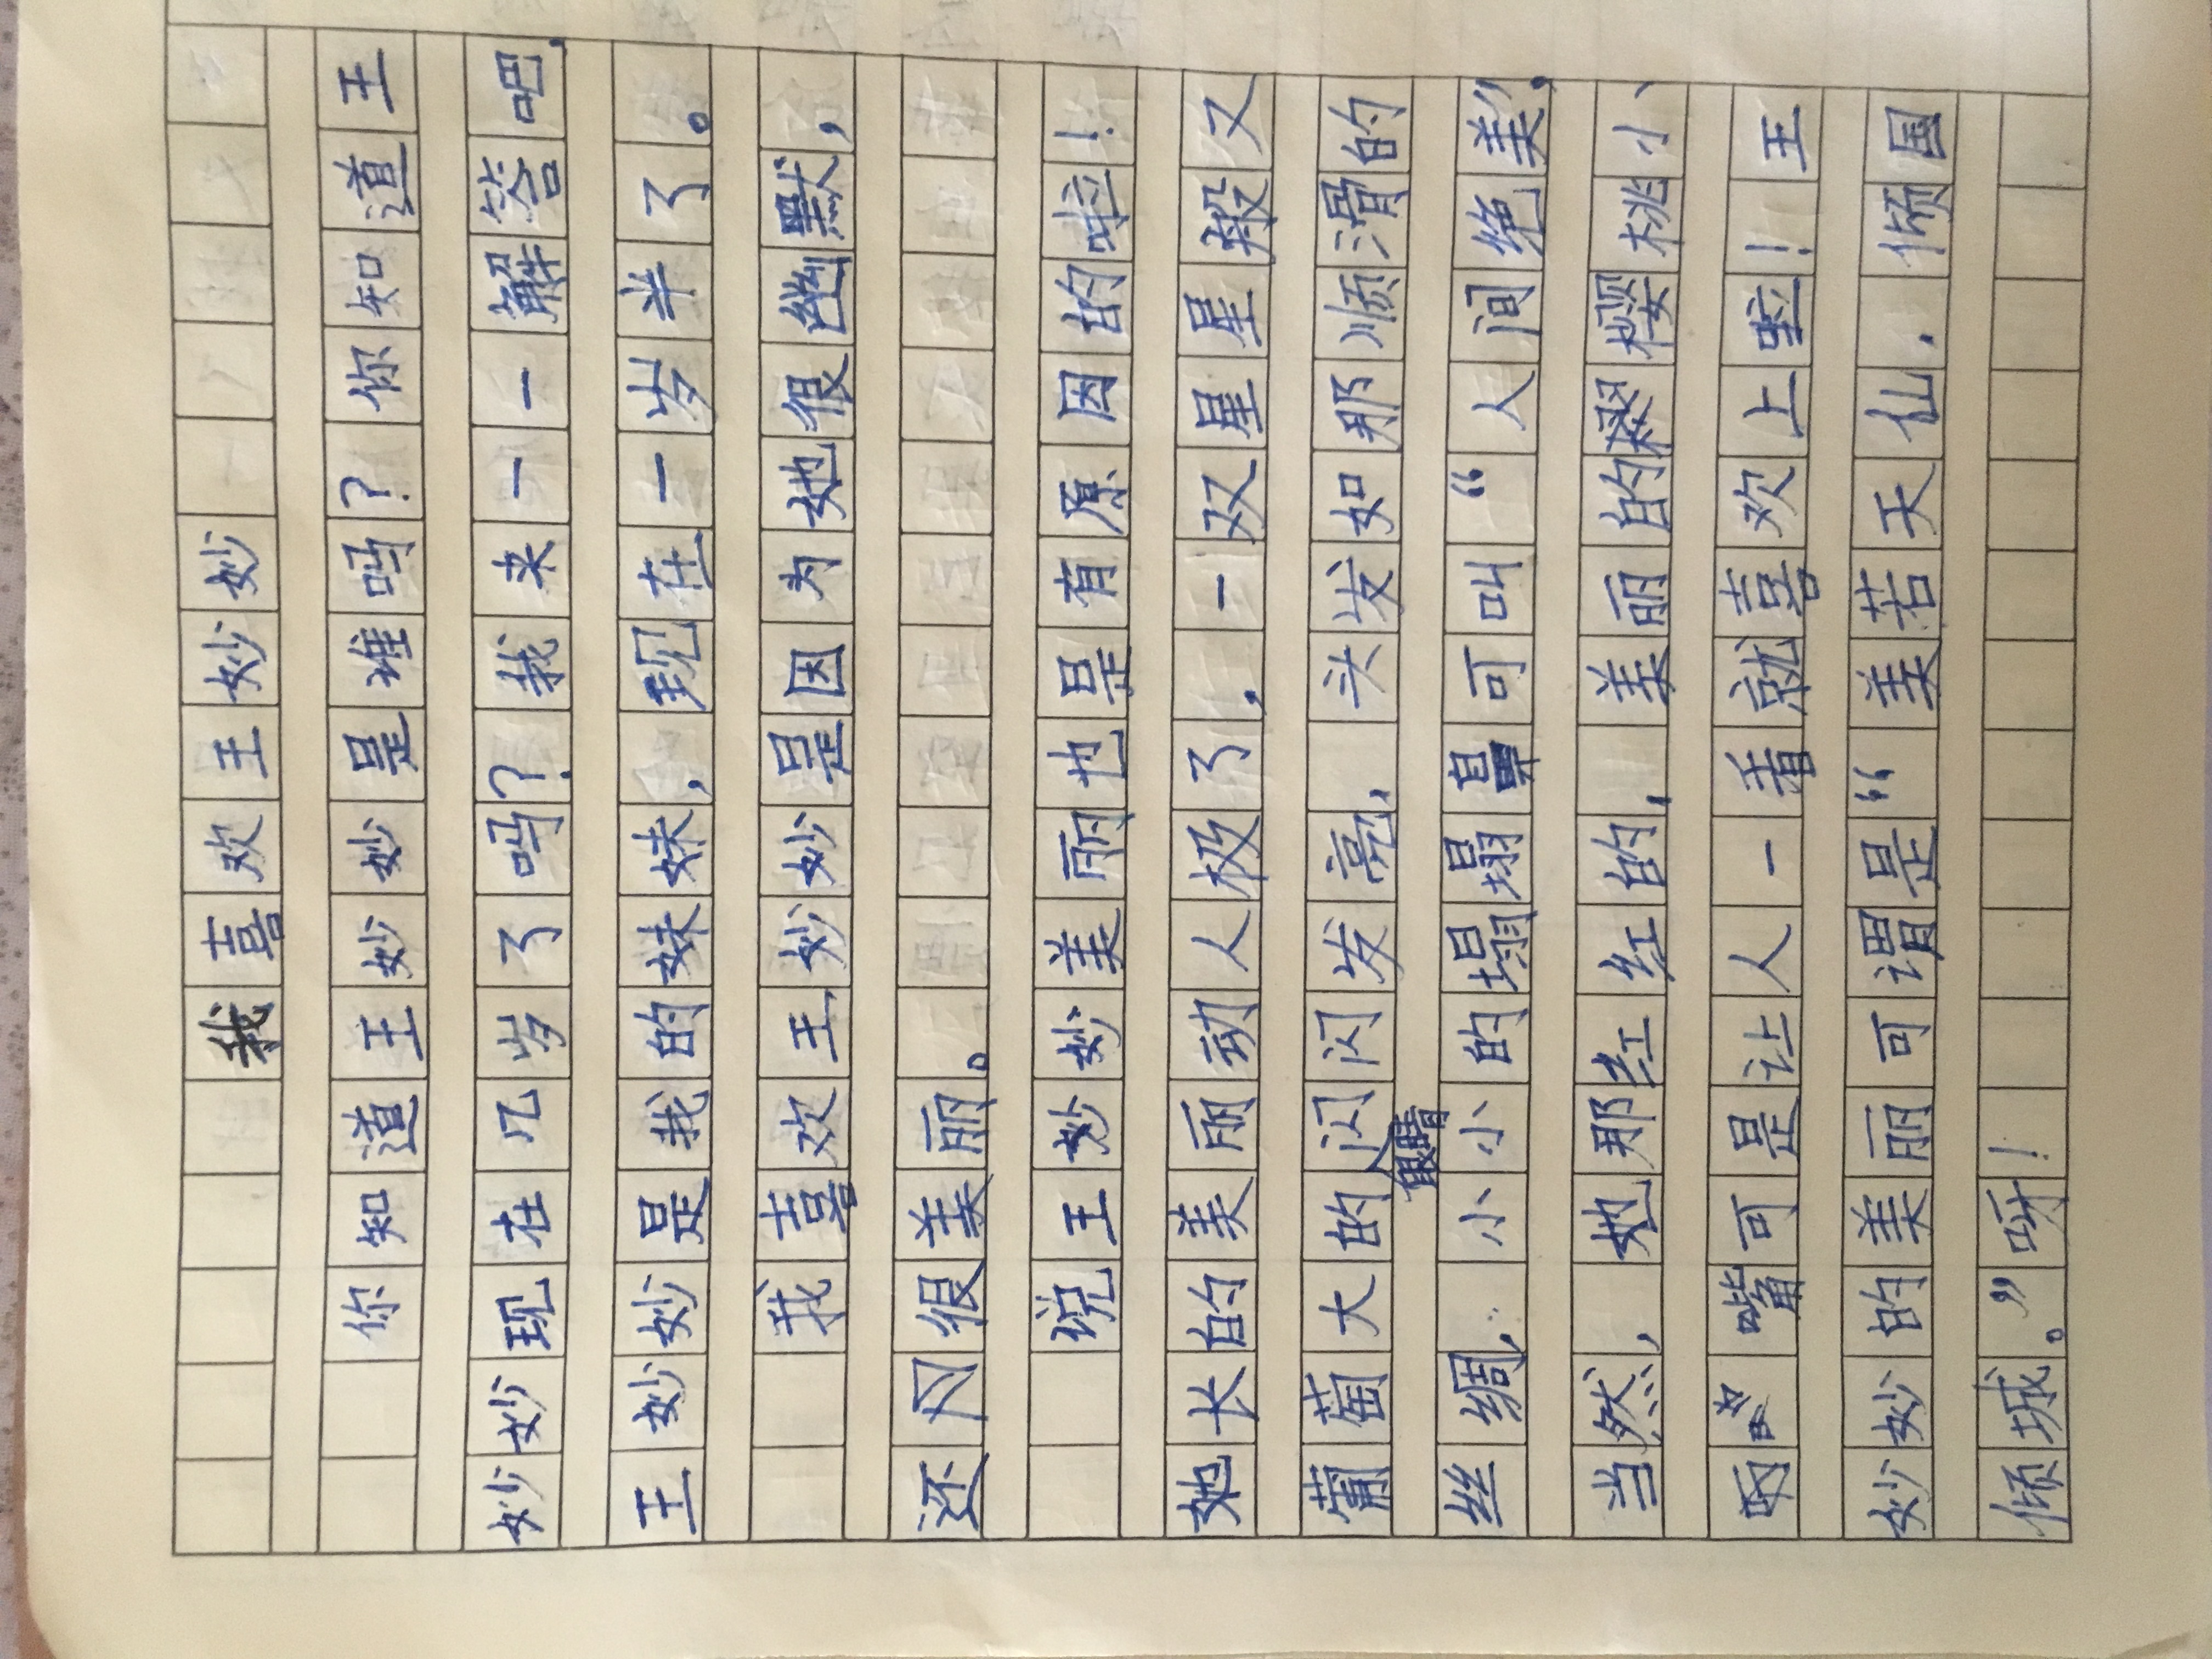 我喜欢王妙妙
你知道王妙妙是谁吗?你知道王
妙妙现在几岁了吗?我来一一解答吧,
王妙妙是我的妹妹,现在一岁半了。
我喜欢王妙妙是因为她很幽默,
还很美丽。
说王妙妙美丽也是有原因的啦!
她长的美丽动人极了,一双星星般又
葡萄大的眼睛闪闪发亮,头发如那顺滑的
丝绸,小小的塌塌鼻可叫“人间绝美”,
当然,她那红红的,美丽的樱桃小、
嘴可是让人一看就喜欢上啦!王
妙妙的美丽可谓是“美若天仙,倾国
倾城。”呀!